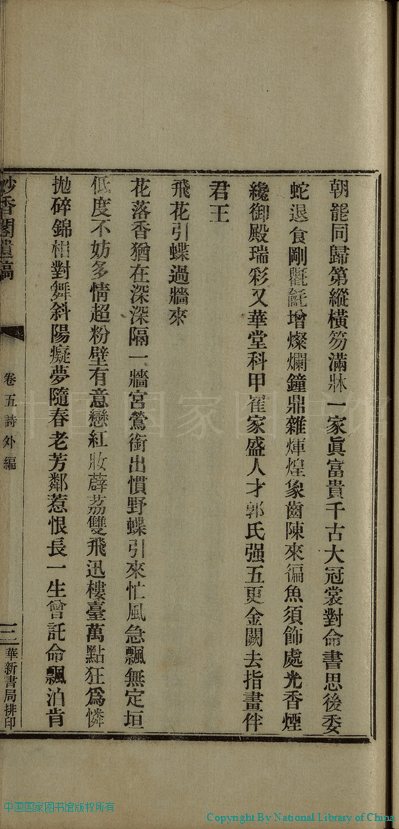 朝罷同歸第縱橫笏滿牀一家眞富貴千古大冠裳對命書思後委
蛇退食剛氍毹增燦爛鐘鼎雜煇煌象齒陳來徧魚須飾處光香煙
纔御殿瑞彩又華堂科甲崔家盛人才郭氏强五更金闕去指畫伴
君王
飛花引蝶過牆來
花落香猶在深深隔一牆宮鶯銜出慣野蝶引來忙風急飄無定垣
低度不妨多情超粉壁有意戀紅妝薜荔雙飛迅樓臺萬點狂爲憐
拋碎錦相對舞斜陽癡夢隨春老芳鄰惹恨長一生曾託命飄泊肯
妙香閣遺稿
卷五詩外編
三
華新書局排印
中国国家图书馆版权所有
Copyright By National Library of China